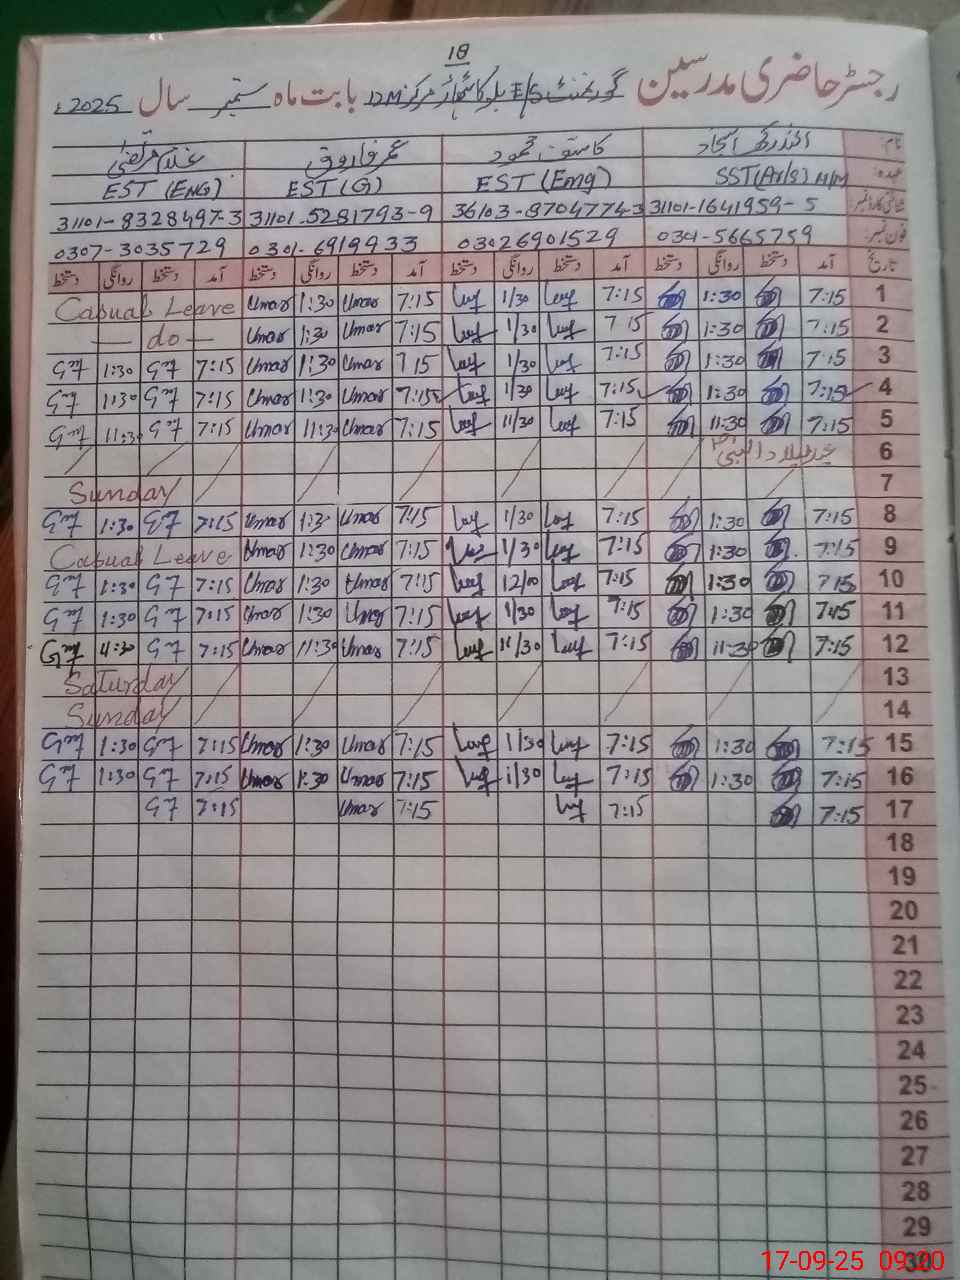 18
رجسٹر حاضری مدرسین گورنمنٹ E/S مرکز 12M بابت ماہ ستمبر سال 2025ء
نام: امجد محمود عمر فاروق غلام مرتضیٰ
عہدہ: SST(Ar/s) H/M EST (Eng) EST (G) EST (ENG)
شناختی کارڈ نمبر: 31101-1641959-5 36103-8704774-3 31101-5281793-9 31101-8328497-3
فون نمبر: 0301-5665759 03026901529 0301-6919933 0307-3035729
تاریخ آمد دستخط روانگی دستخط آمد دستخط روانگی دستخط آمد دستخط روانگی دستخط آمد دستخط روانگی دستخط
1 7:15 1:30 7:15 1/30 7:15 Umar 1:30 Umar Casual Leave
2 7:15 1:30 7 15 1/30 7:15 Umar 1:30 Umar — do —
3 7:15 1:30 7:15 1/30 7 15 Umar 1:30 Umar 7:15 1:30
4 7:15 1:30 7:15 1/30 7:15 Umar 1:30 Umar 7:15 1:30
5 7:15 11:30 7:15 11/30 7:15 Umar 11:30 Umar 7:15 11:30
6 عید میلاد النبیؐ
7 Sunday
8 7:15 1:30 7:15 1/30 7:15 Umar 1:30 Umar 7:15 1:30
9 7:15 1:30 7:15 1/30 7:15 Umar 1:30 Umar Casual Leave
10 7 15 1:30 7:15 12/00 7:15 Umar 1:30 Umar 7:15 1:30
11 7:15 1:30 7:15 1/30 7:15 Umar 1:30 Umar 7:15 1:30
12 7:15 11:30 7:15 11/30 7:15 Umar 11:30 Umar 7:15 11:30
13 Saturday
14 Sunday
15 7:15 1:30 7:15 1/30 7:15 Umar 1:30 Umar 7:15 1:30
16 7:15 1:30 7:15 1/30 7:15 Umar 1:30 Umar 7:15 1:30
17 7:15 7:15 7:15 Umar 7:15
18
19
20
21
22
23
24
25
26
27
28
29
30
17-09-25 09:20